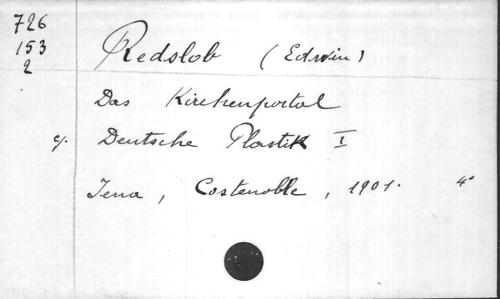 726
153
2
Redslob (Edwin)
Das Kirchenportal
c/. Deutsche Plastik I
Jena, Costenoble, 1901. 4°